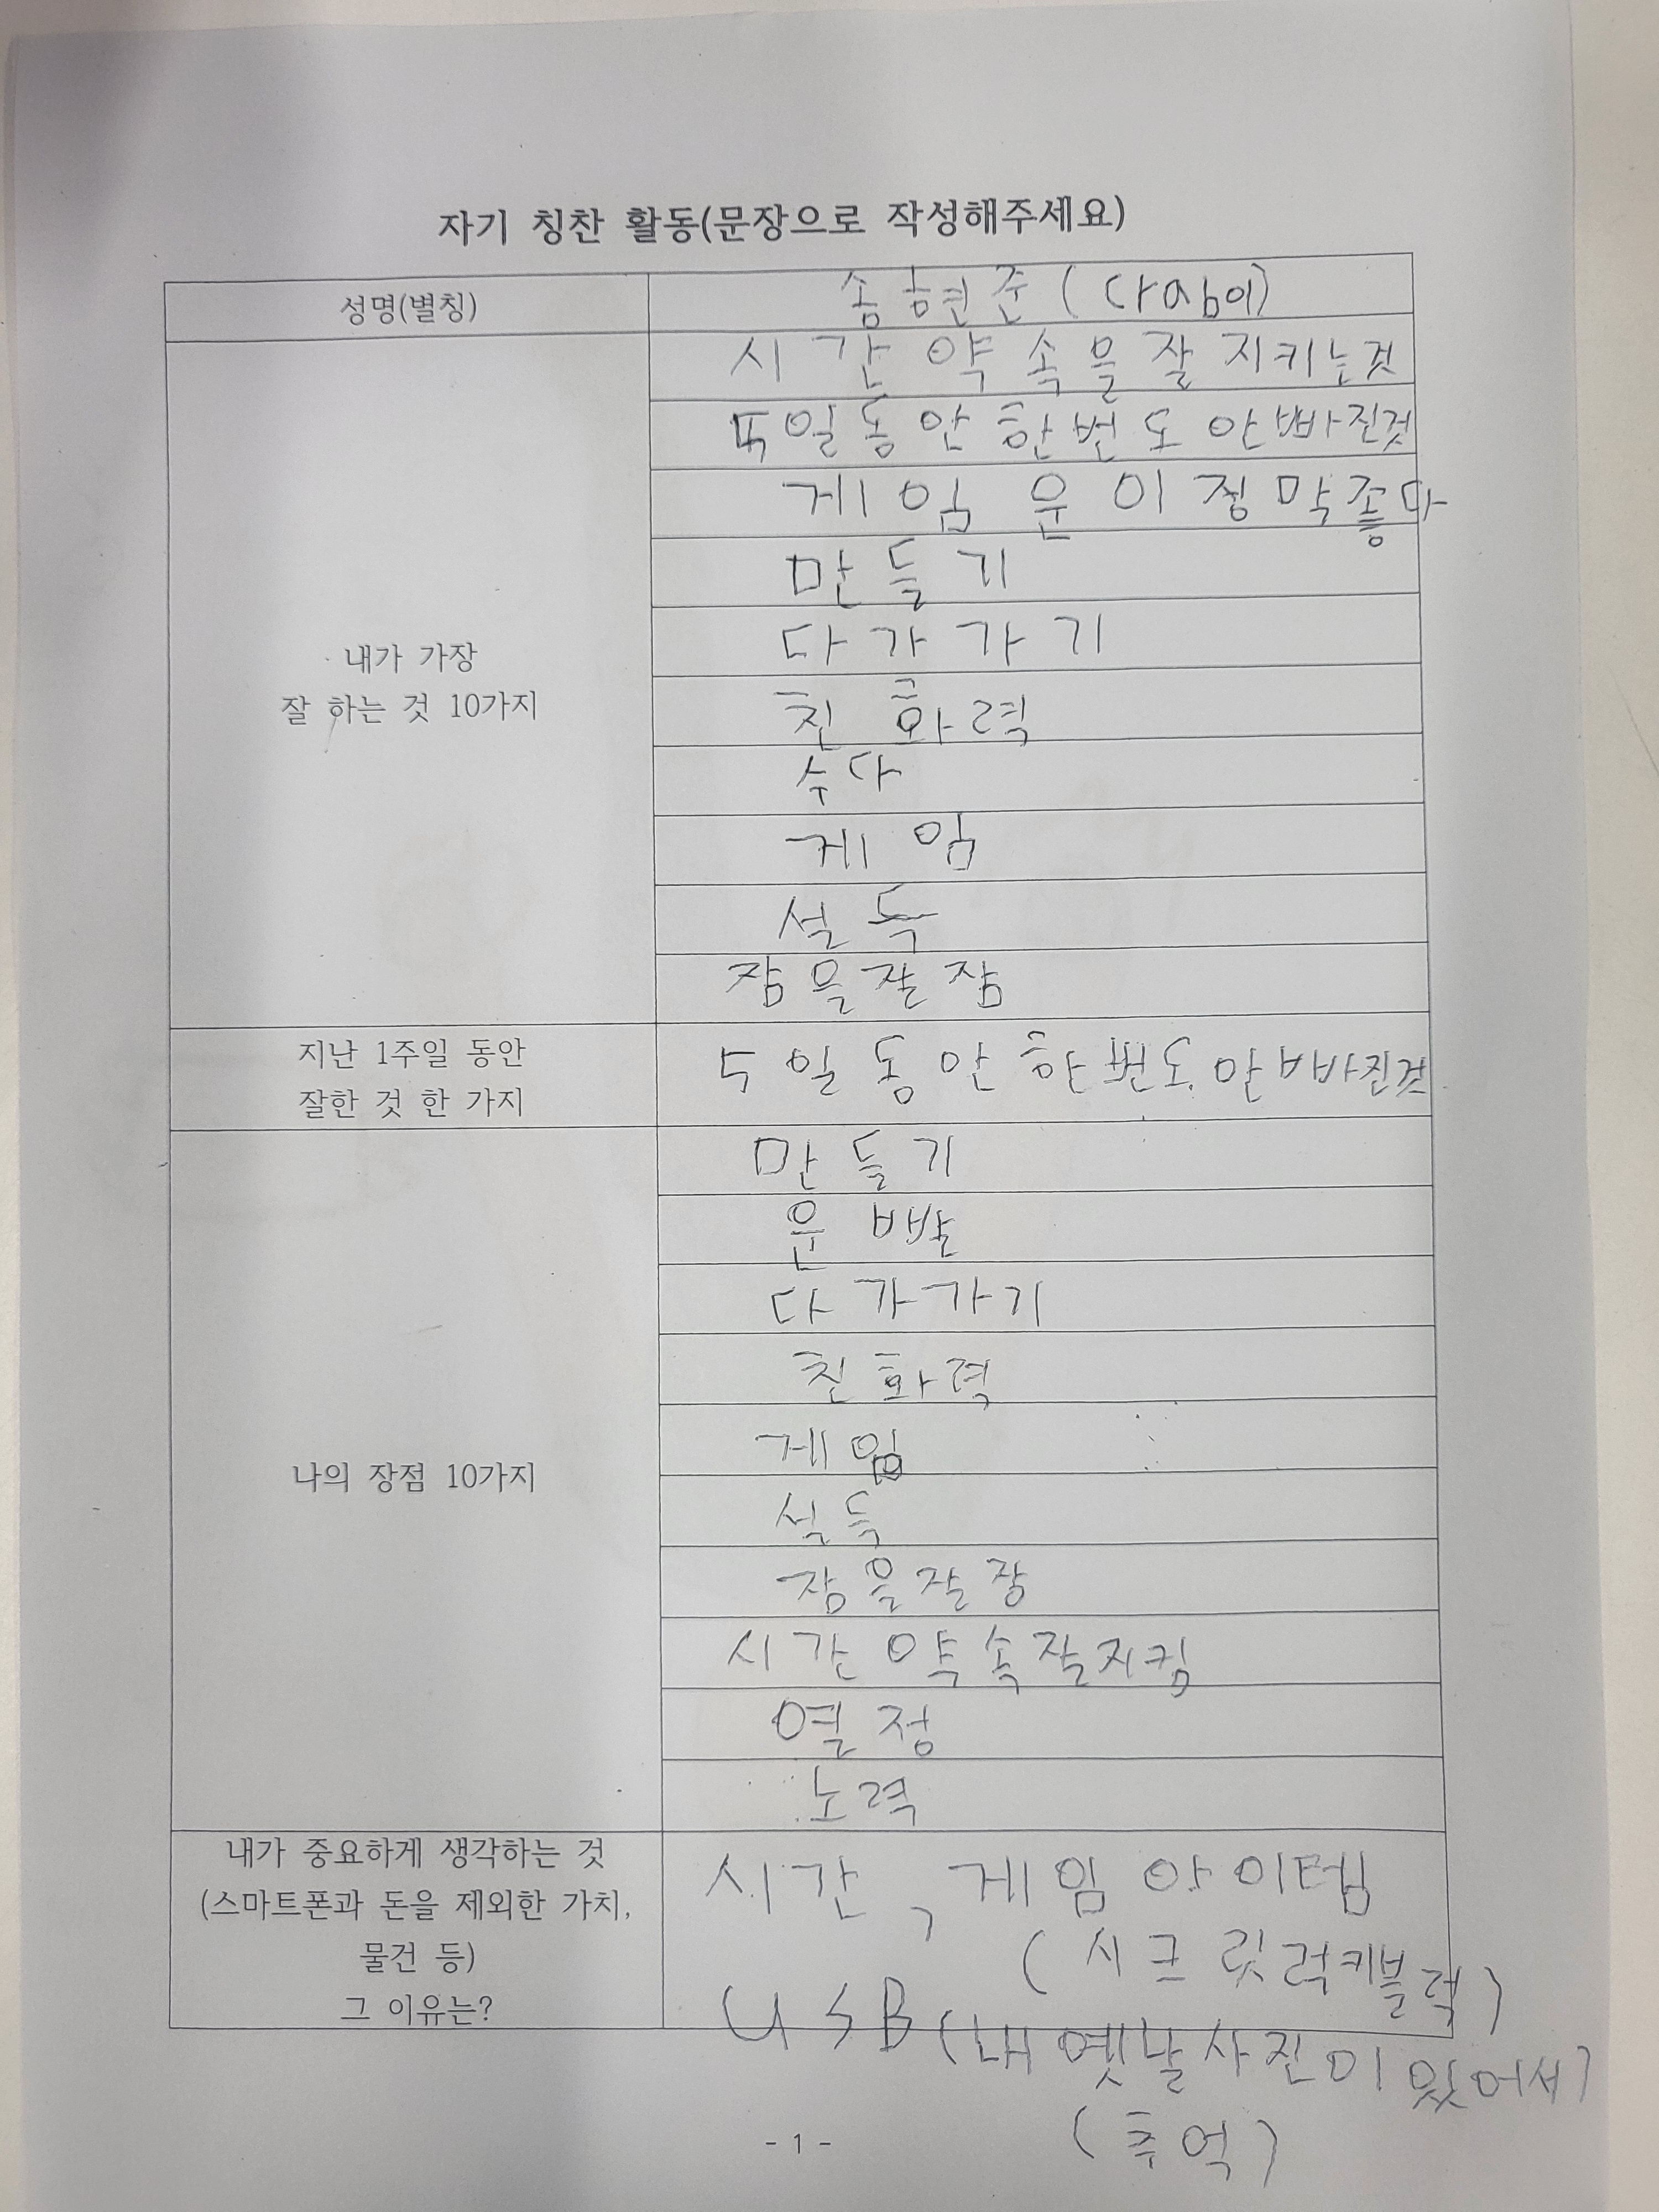 자기 칭찬 활동(문장으로 작성해주세요)
성명(별칭)
송현준 (다임이)
내가 가장
잘 하는 것 10가지
시간 약속을 잘 지키는것
5일동안 한번도 안빠진것
게임 운이 정막좋다
만들기
다가가기
친화력
수다
게임
설득
잠을잘잠
지난 1주일 동안
잘한 것 한 가지
5일동안 한번도 안빠진것
나의 장점 10가지
만들기
운빨
다가가기
친화력
게임
설득
잠을잘잠
시간약속잘지킴
열정
노력
내가 중요하게 생각하는 것
(스마트폰과 돈을 제외한 가치,
물건 등)
그 이유는?
시간, 게임아이템
(시크릿럭키블럭)
USB (내옛날사진이있어서)
(추억)
- 1 -